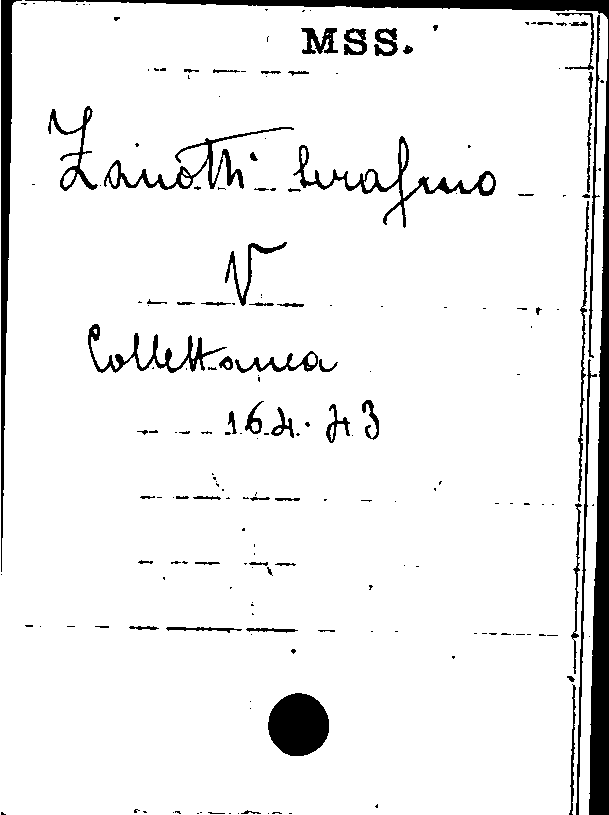 MSS.
Zanotti Serafino
V
Collettanea
164. 43